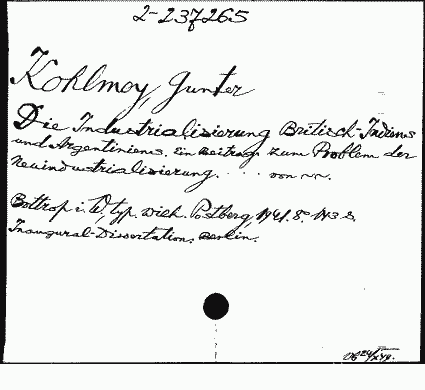 2-237265
Kohlmey, Gunter
Die Industrialisierung Britisch-Indiens
und Argentiniens. Ein Beitrag zum Problem der
Neuindustrialisierung. . . . von ~~.
Bottrop i. W., typ. Wilh. Postberg, 1941. 8°. 113 S.
Inaugural-Dissertation, Berlin.